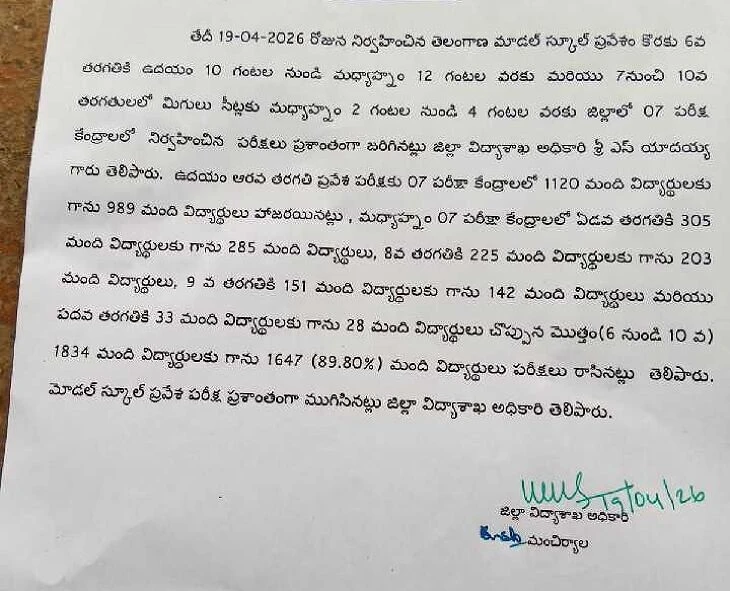 తేదీ 19-04-2026 రోజున నిర్వహించిన తెలంగాణ మాడల్ స్కూల్ ప్రవేశం కొరకు 6వ
తరగతికి ఉదయం 10 గంటల నుండి మధ్యాహ్నం 12 గంటల వరకు మరియు 7నుంచి 10వ
తరగతులలో మిగులు సీట్లకు మధ్యాహ్నం 2 గంటల నుండి 4 గంటల వరకు జిల్లాలో 07 పరీక్ష
కేంద్రాలలో నిర్వహించిన పరీక్షలు ప్రశాంతంగా జరిగినట్లు జిల్లా విద్యాశాఖ అధికారి శ్రీ ఎస్ యాదయ్య
గారు తెలిపారు. ఉదయం ఆరవ తరగతి ప్రవేశ పరీక్షకు 07 పరీక్షా కేంద్రాలలో 1120 మంది విద్యార్థులకు
గాను 989 మంది విద్యార్థులు హాజరయినట్లు , మధ్యాహ్నం 07 పరీక్షా కేంద్రాలలో ఏడవ తరగతికి 305
మంది విద్యార్థులకు గాను 285 మంది విద్యార్థులు, 8వ తరగతికి 225 మంది విద్యార్థులకు గాను 203
మంది విద్యార్థులు, 9 వ తరగతికి 151 మంది విద్యార్థులకు గాను 142 మంది విద్యార్థులు మరియు
పదవ తరగతికి 33 మంది విద్యార్థులకు గాను 28 మంది విద్యార్థులు చొప్పున మొత్తం(6 నుండి 10 వ)
1834 మంది విద్యార్థులకు గాను 1647 (89.80%) మంది విద్యార్థులు పరీక్షలు రాసినట్లు తెలిపారు.
మోడల్ స్కూల్ ప్రవేశ పరీక్ష ప్రశాంతంగా ముగిసినట్లు జిల్లా విద్యాశాఖ అధికారి తెలిపారు.
19/04/26
జిల్లా విద్యాశాఖ అధికారి
మంచిర్యాల